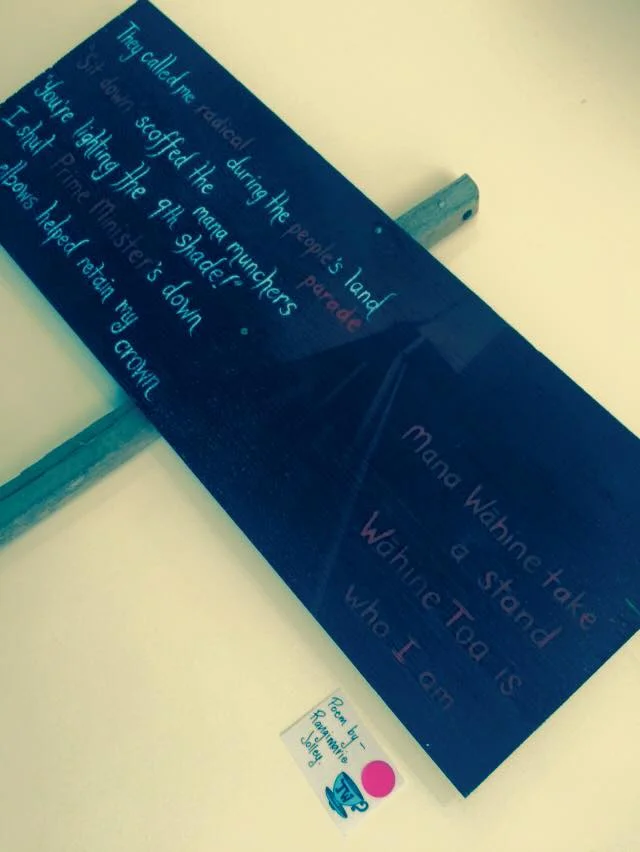 They called me radical during the people's land parade
"Sit down scoffed the mana munchers
"You're lighting the 9th shade!"
I shut Prime Minister's down
elbows helped retain my crown
Mana Wāhine take
a stand
Wāhine Toa is
who I am
Poem by -
Rangimarie
Jolley.
JWP